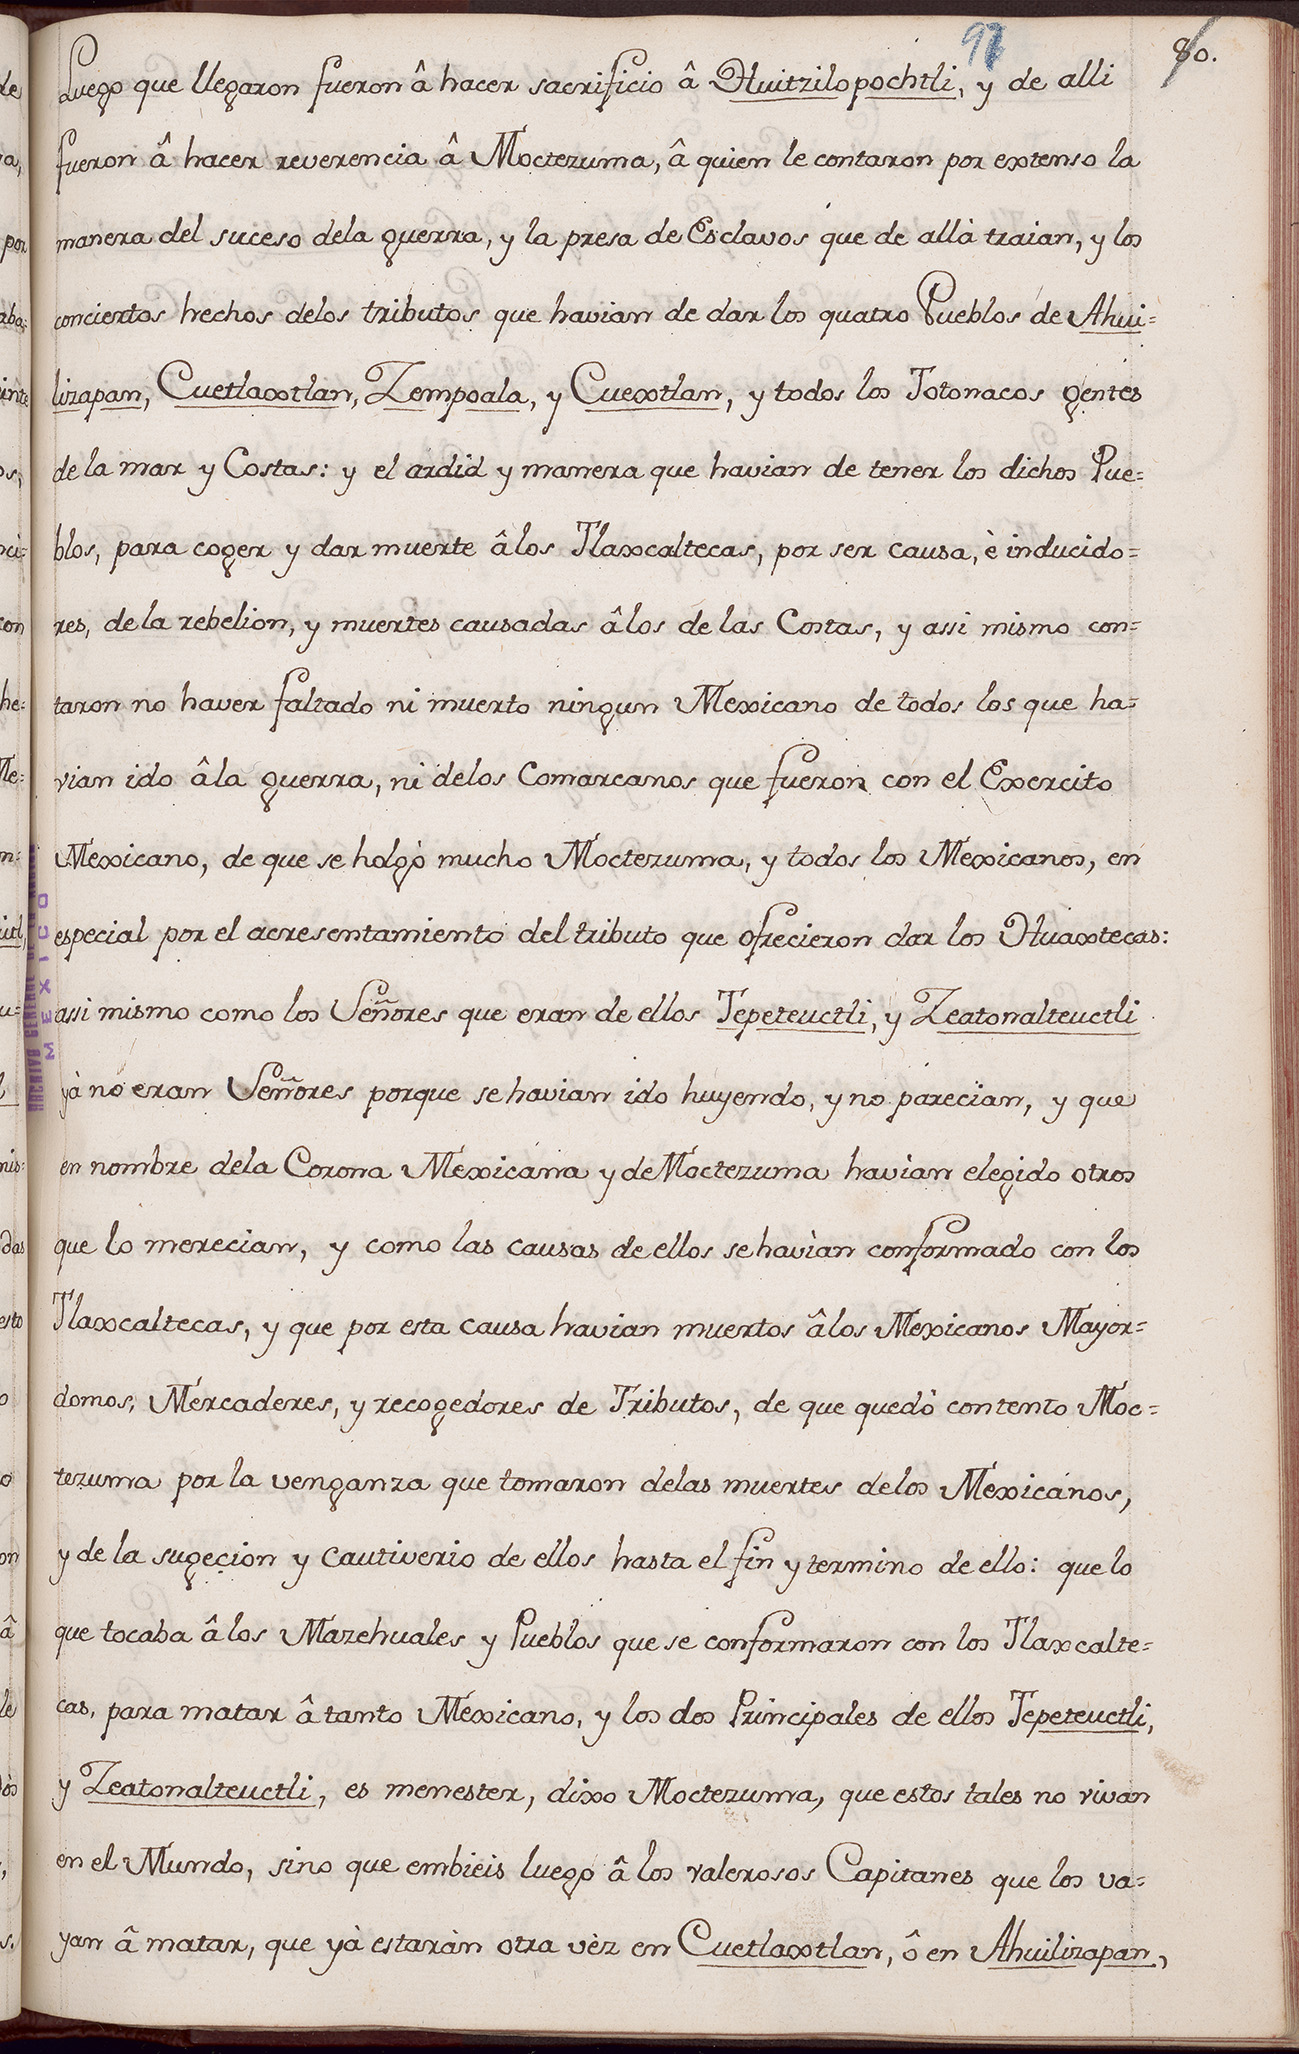 97 80.
Luego que llegaron fueron â hacer sacrificio â Huitzilopochtli, y de alli
fueron â hacer reverencia â Moctezuma, â quien le contaron por extenso la
manera del suceso dela guerra, y la presa de Esclavos que de allà traian, y los
conciertos hechos delos tributos que havian de dar los quatro Pueblos de Ahui=
lizapan, Cuetlaxtlan, Zempoala, y Cuextlan, y todos los Totonacos gentes
de la mar y Costas: y el ardid y manera que havian de tener los dichos Pue=
blos, para coger y dar muerte âlos Tlaxcaltecas, por ser causa, è inducido=
res, de la rebelion, y muertes causadas âlos de las Costas, y assi mismo con=
taron no haver faltado ni muerto ningun Mexicano de todos los que ha=
vian ido âla guerra, ni delos Comarcanos que fueron con el Exercito
Mexicano, de que se holgò mucho Moctezuma, y todos los Mexicanos, en
especial por el acresentamiento del tributo que ofrecieron dar los Huaxtecas:
assi mismo como los Señores que eran de ellos Tepeteuctli, y Zeatonalteuctli
yà no eran Señores porque se havian ido huyendo, y no parecian, y que
en nombre dela Corona Mexicana y de Moctezuma havian elegido otros
que lo merecian, y como las causas de ellos se havian conformado con los
Tlaxcaltecas, y que por esta causa havian muertos âlos Mexicanos Mayor=
domos, Mercaderes, y recogedores de Tributos, de que quedò contento Moc=
tezuma por la venganza que tomaron delas muertes delos Mexicanos,
y de la sugecion y cautiverio de ellos hasta el fin y termino de ello: que lo
que tocaba â los Mazehuales y Pueblos que se conformaron con los Tlaxcalte=
cas, para matar â tanto Mexicano, y los dos Principales de ellos Tepeteuctli,
y Zeatonalteuctli, es menester, dixo Moctezuma, que estos tales no vivan
en el Mundo, sino que embieis luego â los valerosos Capitanes que los va=
yan â matar, que yà estaràn otra vèz en Cuetlaxtlan, ô en Ahuilizapan,
MEXICO